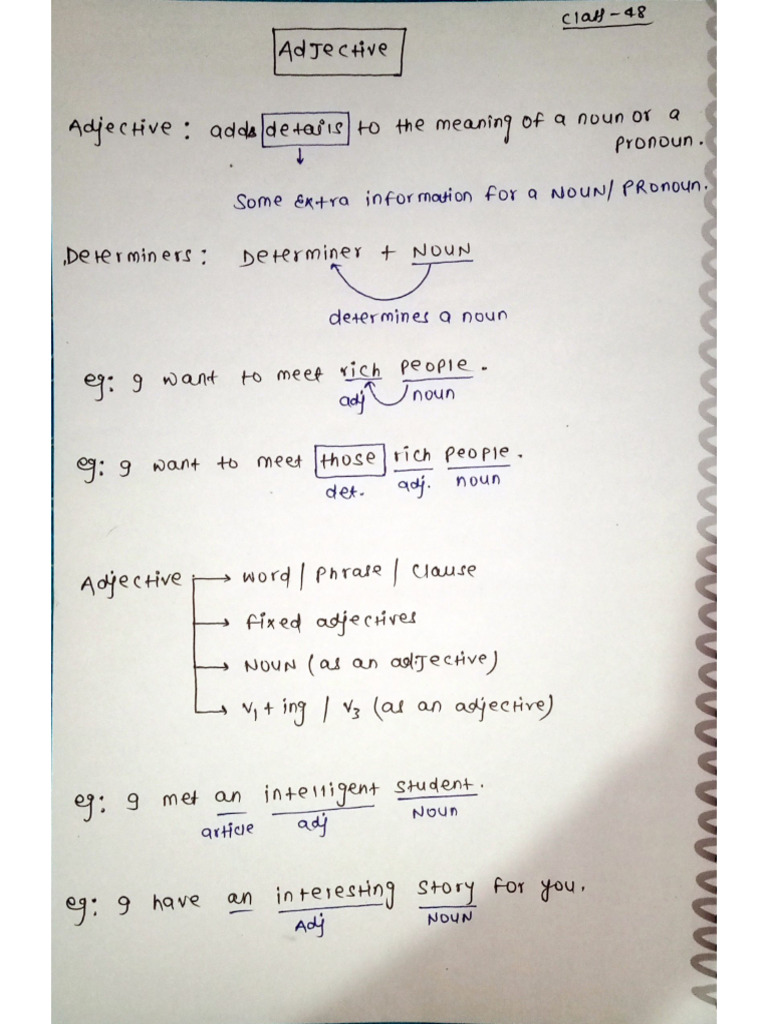 Class-48
Adjective
Adjective: adds details to the meaning of a noun or a
pronoun.
Some extra information for a NOUN/PRonoun.
Determiners: Determiner + NOUN
determines a noun
eg: I want to meet rich people.
adj noun
eg: I want to meet those rich people.
det. adj. noun
Adjective → word / Phrase / Clause
→ fixed adjectives
→ NOUN (as an adjective)
→ V₁ + ing / V₃ (as an adjective)
eg: I met an intelligent student.
article adj Noun
eg: I have an interesting story for you.
Adj NOUN